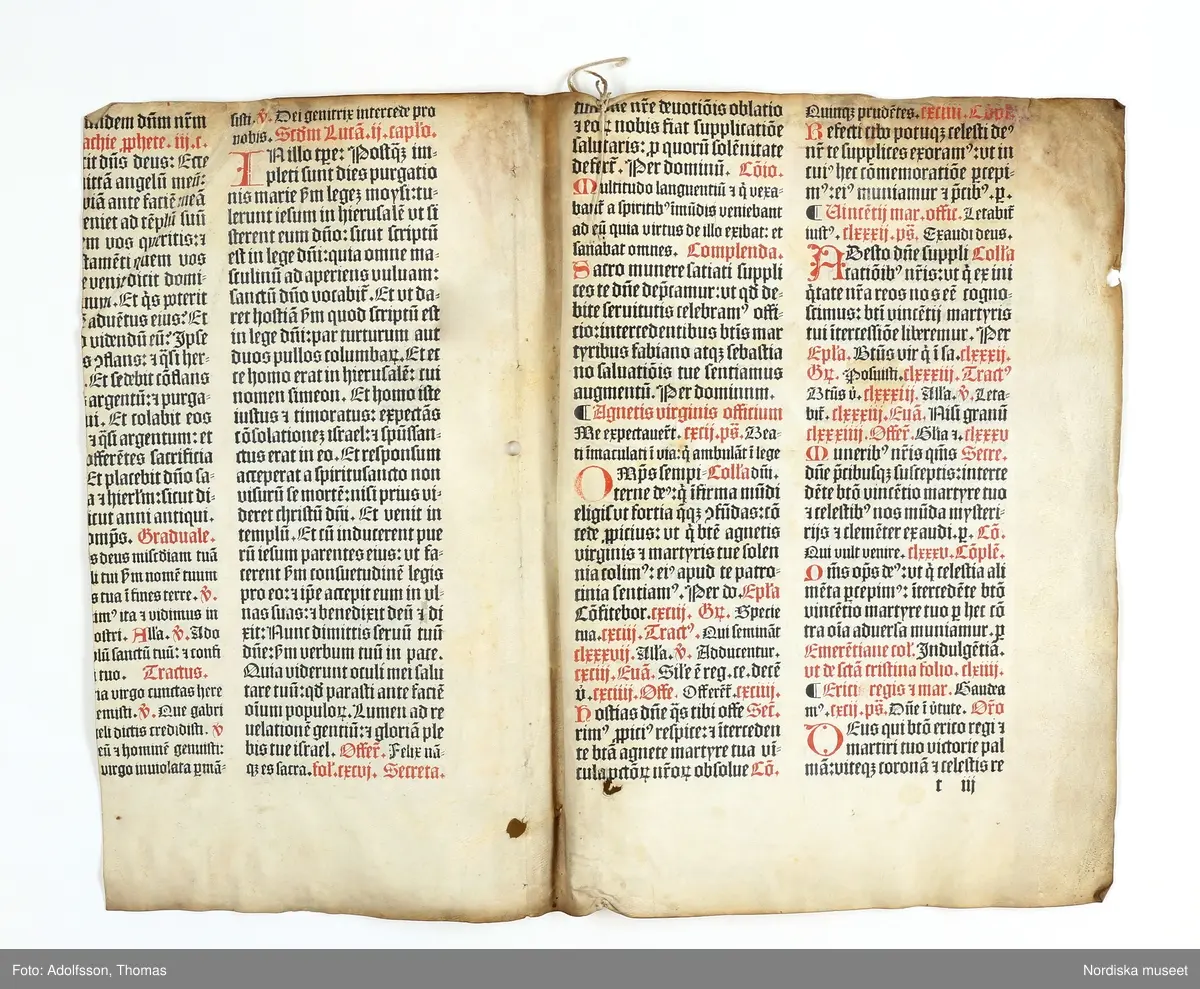 uidem dūm nr̄m
achie ꝓphete. iij. c.
cit dn̄s deus: Ecce
ittā angelū meū:
viā ante faciē meā
eniet ad tēplū suū
em vos queritis: ⁊
stamēti quem vos
e venit dicit domi-
nuꝝ. Et q̄s poterit
aduētus eius? Et
d videndū eū? Ipse
s ꝯflans: ⁊ q̄si her-
. Et sedebit cōflans
argentū: ⁊ purga-
ui. Et colabit eos
⁊ q̄si argentum: et
offerētes sacrificia
Et placebit dn̄o sa-
a ⁊ hierlm̄: sicut di-
icut anni antiqui.
omp̄s. Graduale.
s deus misc̄diam tuā
li tui ẜm nomē tuum
s tua ī fines terre. ꝟ.
imꝰ ita ⁊ vidimus in
ostri. Alla. ꝟ. Ado
plū sanctū tuū: ⁊ confi
i tuo. Tractus.
ia virgo cunctas here
emisti. ꝟ. Que gabri
eli dictis credidisti. ꝟ
eū ⁊ hominē genuisti:
virgo inuiolata ꝑmā-
sisti. ꝟ. Dei genitrix intercede pro
nobis. Scd̄m Lucā. ij. caplo.
IN illo tꝑe: Postqꝫ im-
pleti sunt dies purgatio
nis marie ẜm legeꝫ moysi: tu-
lerunt iesum in hierusalē: vt si
sterent eum dn̄o: sicut scriptū
est in lege dn̄i: quia omne ma-
sculinū ad aperiens vuluam:
sanctū dn̄o vocabit̄. Et vt da-
ret hostiā ẜm quod scriptū est
in lege dn̄i: par turturum aut
duos pullos columbaꝝ. Et ec
ce homo erat in hierusalē: cui
nomen simeon. Et homo iste
iustus ⁊ timoratus: expectās
cōsolationeꝫ israel: ⁊ spūssan-
ctus erat in eo. Et responsum
acceperat a spiritusancto non
visurū se mortē: nisi prius vi-
deret christū dn̄i. Et venit in
templū. Et cū inducerent pue
rū iesum parentes eius: vt fa-
cerent ẜm consuetudinē legis
pro eo: ⁊ ip̄e accepit eum in vl-
nas suas: ⁊ benedixit deū ⁊ di
xit: Nunc dimittis seruū tuū
dn̄e: ẜm verbum tuū in pace.
Quia viderunt oculi mei salu
tare tuū: qd̄ parasti ante faciē
oīum populoꝝ. Lumen ad re
uelationē gentiū: ⁊ gloriā ple
bis tue israel. Offer̄. Felix nā-
qꝫ es sacra. fol. cxcvj. Secreta.
nr̄e deuotiōis oblatio
⁊ eoꝝ nobis fiat supplicatiōe
salutaris: ꝓ quorū solēnitate
defert̄. Per dominū. Cōio.
Multitudo languentiū ⁊ q̄ vexa-
bant̄ a spiritibꝰ īmūdis veniebant
ad eū quia virtus de illo exibat: et
sanabat omnes. Complenda.
Sacro munere satiati suppli
ces te dn̄e dep̄camur: vt qd̄ de-
bite seruitutis celebramꝰ offi-
cio: intercedentibus btīs mar
tyribus fabiano atqꝫ sebastia
no saluatiōis tue sentiamus
augmentū. Per dominum.
¶ Agnetis virginis officium
Me expectauer̄t. cxcij. ps̄. Bea-
ti īmaculati ī via: q̄ ambulāt ī lege
OMp̄s sempi- Coll̄a dn̄i.
terne deꝰ: q̄ īfirma mūdi
eligis vt fortia q̄qꝫ ꝯfūdas: cō
cede ꝓpicius: vt q̄ btē agnetis
virginis ⁊ martyris tue solen
nia colimꝰ: eiꝰ apud te patro-
cinia sentiamꝰ. Per do. Epl̄a
Cōfitebor. cxciij. Gꝝ. Specie
tua. cxciij. Tractꝰ. Qui semināt
clxxxvij. Alla. ꝟ. Adducentur.
cxciij. Euā. Sil̄e ē reg. ce. decē
v̄. cxciiij. Offe. Offerēt̄. cxciiij.
Hostias dn̄e q̄s tibi offe Sec̄.
rimꝰ ꝓpiciꝰ respice: ⁊ īterceden
te btā agnete martyre tua vī-
cula pctōꝝ nr̄oꝝ obsolue Cō.
Quinqꝫ prudētes. cxciiij. Cōpl̄.
Refecti cibo potuqꝫ celesti deꝰ
nr̄ te supplices exoramꝰ: vt in
cuiꝰ hec cōmemoratiōe ꝑcepi-
mꝰ: eiꝰ muniamur ⁊ p̄cibꝰ. ꝑ.
¶ Uincētij mar. offic. Letabit̄
iustꝰ. clxxxij. ps̄. Exaudi deus.
ADesto dn̄e suppli Coll̄a
catiōibꝰ nr̄is: vt q̄ ex ini
q̄tate nr̄a reos nos eē cogno-
scimus: btī vincētij martyris
tui ītercessiōe liberemur. Per
Epl̄a. Btūs vir q̄ ī sa. clxxxij.
Gꝝ. Posuisti. clxxxiij. Tractꝰ
Btūs v̄. clxxxiij. Alla. ꝟ. Leta-
bit̄. clxxxiij. Euā. Nisi granū
clxxxiiij. Offer̄. Glia ⁊. clxxxv
Muneribꝰ nr̄is q̄ms Secre.
dn̄e p̄cibusqꝫ susceptis: interce
dēte btō vincētio martyre tuo
⁊ celestibꝰ nos mūda mysteri-
rijs ⁊ clemēter exaudi. ꝑ. Cō.
Qui vult venire. clxxxv. Cōplē.
Oīm̄s op̄s deꝰ: vt q̄ celestia ali
mēta ꝑcepimꝰ: ītercedēte btō
vincētio martyre tuo ꝑ hec cō
tra oīa aduersa muniamur. ꝑ
Emerētiane col̄. Indulgētiā.
vt de sctā cristina folio. clxiij.
¶ Erici regis ⁊ mar. Gaudea
mꝰ. cxcij. ps̄. Dn̄e ī v̄tute. Or̄o
DEus qui btō erico regi ⁊
martiri tuo victorie pal
mā: viteqꝫ coronā ⁊ celestis re
t iij
Foto: Adolfsson, Thomas
Nordiska museet